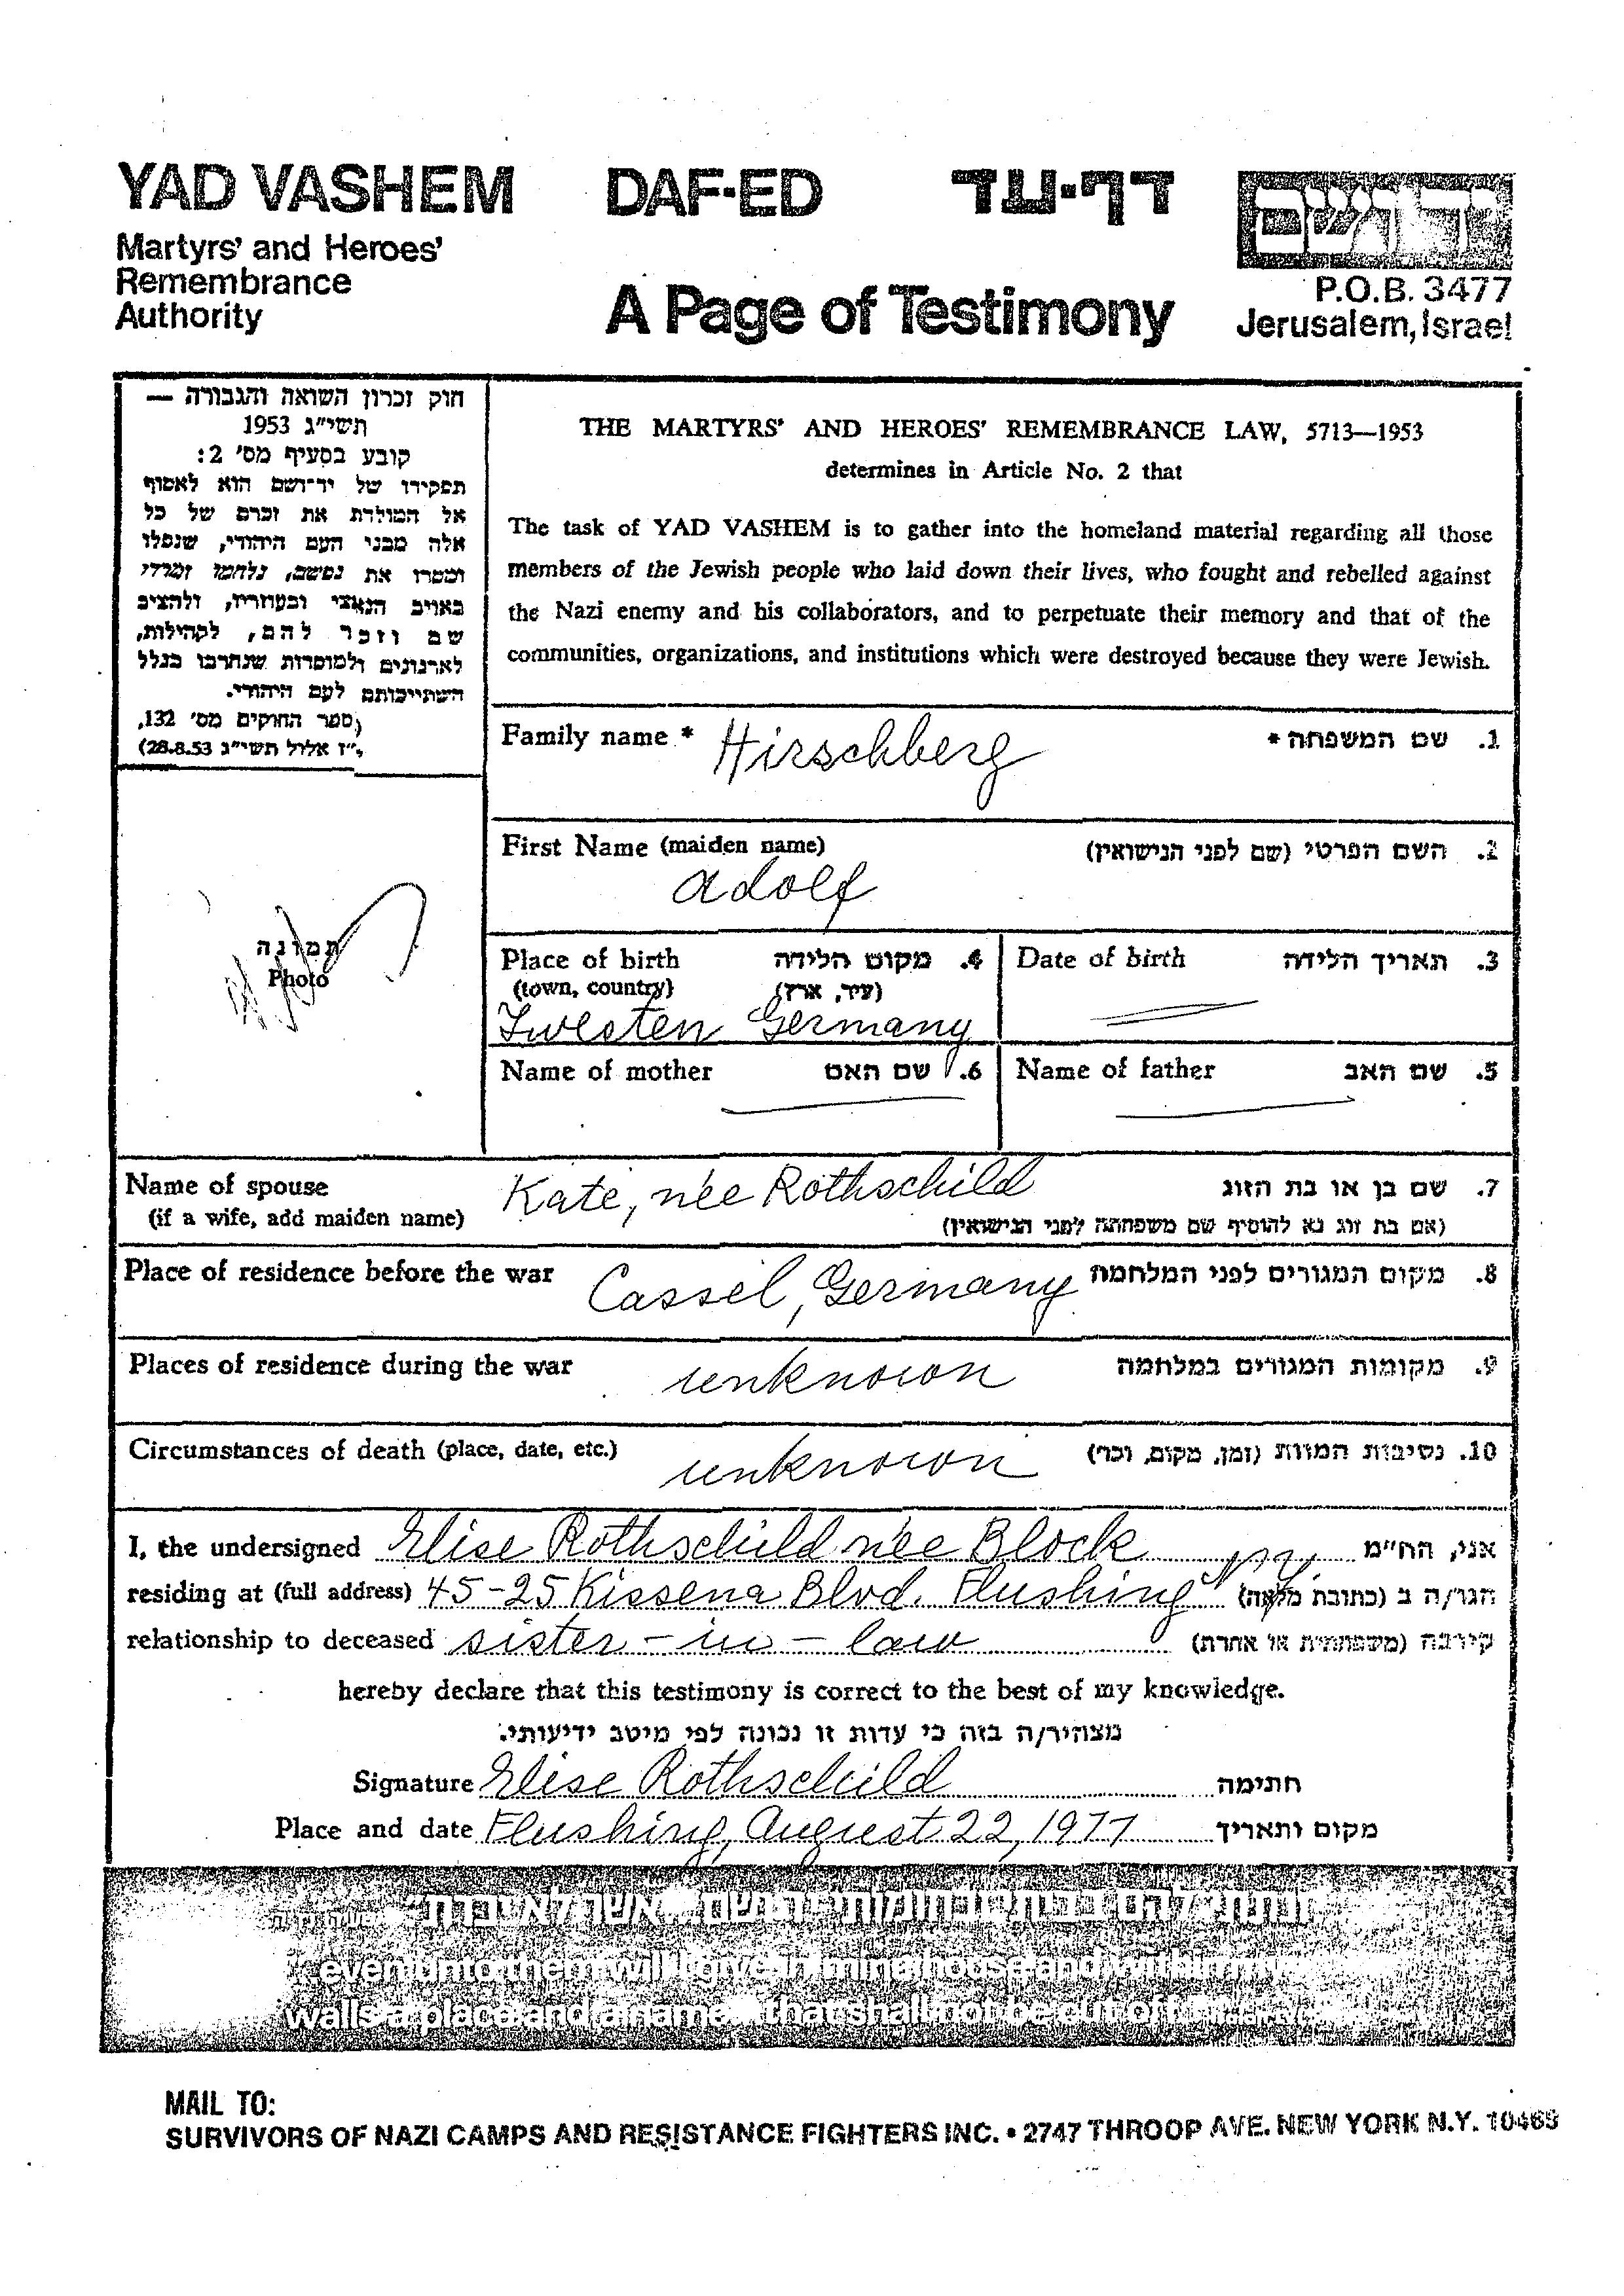 YAD VASHEM DAF-ED דף-עד ידושם
Martyrs' and Heroes'
Remembrance
Authority
A Page of Testimony
P.O.B. 3477
Jerusalem, Israel
חוק זכרון השואה והגבורה —
תשי"ג 1953
קובע בסעיף מס' 2:
תפקידו של יד-ושם הוא לאסוף
אל המולדת את זכרם של כל
אלה מבני העם היהודי, שנפלו
ומסרו את נפשם, נלחמו ומרדו
באויב הנאצי ובעוזריו, ולהציב
שם וזכר להם, לקהילות,
לארגונים ולמוסדות שנחרבו בגלל
השתייכותם לעם היהודי.
(ספר החוקים מס' 132,
י"ז אלול תשי"ג 28.8.53)
THE MARTYRS' AND HEROES' REMEMBRANCE LAW, 5713—1953
determines in Article No. 2 that
The task of YAD VASHEM is to gather into the homeland material regarding all those
members of the Jewish people who laid down their lives, who fought and rebelled against
the Nazi enemy and his collaborators, and to perpetuate their memory and that of the
communities, organizations, and institutions which were destroyed because they were Jewish.
Family name * Hirschberg 1. שם המשפחה *
First Name (maiden name) 2. השם הפרטי (שם לפני הנישואין)
Adolf
תמונה
Photo
Place of birth 4. מקום הלידה
(town, country) (עיר, ארץ)
Zwesten Germany
Date of birth 3. תאריך הלידה
Name of mother 6. שם האם
Name of father 5. שם האב
Name of spouse Kate, née Rothschild 7. שם בן או בת הזוג
(if a wife, add maiden name) (אם בת זוג נא להוסיף שם משפחתה לפני הנישואין)
Place of residence before the war Cassel, Germany 8. מקום המגורים לפני המלחמה
Places of residence during the war unknown 9. מקומות המגורים במלחמה
Circumstances of death (place, date, etc.) unknown 10. נסיבות המוות (זמן, מקום, וכו')
I, the undersigned Elise Rothschild née Block אני, הח"מ
residing at (full address) 45-25 Kissena Blvd. Flushing N.Y. הגר/ה ב (כתובת מלאה)
relationship to deceased sister-in-law קירבה (משפחתית או אחרת)
hereby declare that this testimony is correct to the best of my knowledge.
מצהיר/ה בזה כי עדות זו נכונה לפי מיטב ידיעותי.
Signature Elise Rothschild חתימה
Place and date Flushing, August 22, 1977 מקום ותאריך
...even unto them will I give in mine house and within my
walls a place and a name... that shall not be cut off
MAIL TO:
SURVIVORS OF NAZI CAMPS AND RESISTANCE FIGHTERS INC. • 2747 THROOP AVE. NEW YORK N.Y. 10469